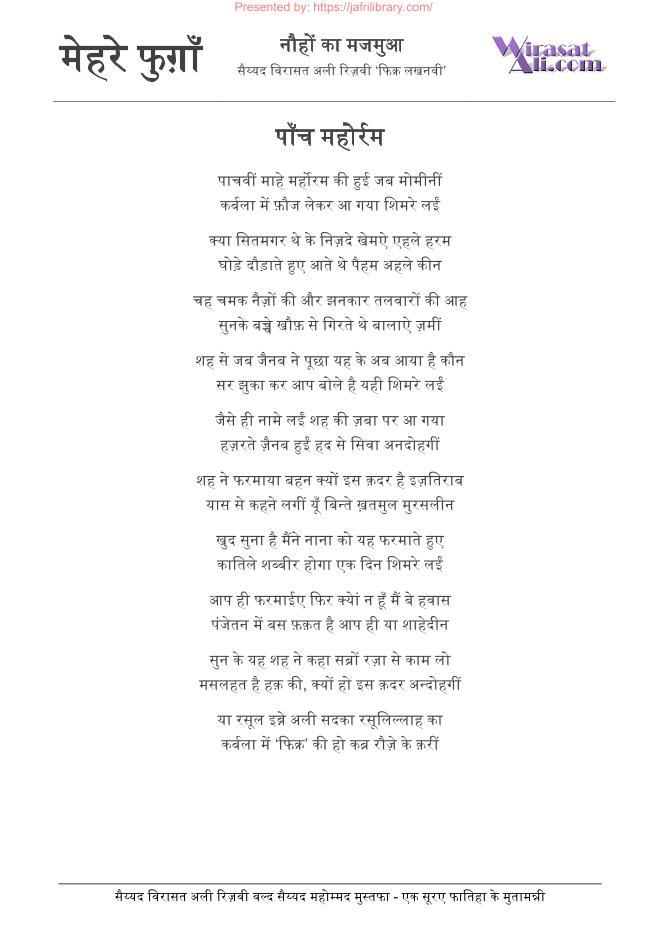 Presented by: https://jafrilibrary.com/
मेहरे फुग़ाँ
नौहों का मजमुआ
सैय्यद विरासत अली रिज़वी ‘फिक्र लखनवी’
Wirasat
Ali.com
पाँच महोर्रम
पाचवीं माहे मर्होरम की हुई जब मोमीनीं
कर्बला में फ़ौज लेकर आ गया शिमरे लईं
क्या सितमगर थे के निज़दे खेमऐ एहले हरम
घोड़े दौड़ाते हुए आते थे पैहम अहले कीन
चह चमक नैज़ों की और झनकार तलवारों की आह
सुनके बच्चे खौफ़ से गिरते थे बालाऐ ज़मीं
शह से जब जैनब ने पूछा यह के अब आया है कौन
सर झुका कर आप बोले है यही शिमरे लईं
जैसे ही नामे लईं शह की ज़बा पर आ गया
हज़रते ज़ैनब हुईं हद से सिवा अनदोहगीं
शह ने फरमाया बहन क्यों इस क़दर है इज़तिराब
यास से कहने लगीं यूँ बिन्ते ख़तमुल मुरसलीन
खुद सुना है मैंने नाना को यह फरमाते हुए
कातिले शब्बीर होगा एक दिन शिमरे लईं
आप ही फरमाईए फिर क्येां न हूँ मैं बे हवास
पंजेतन में बस फ़क़त है आप ही या शाहेदीन
सुन के यह शह ने कहा सब्रों रज़ा से काम लो
मसलहत है हक़ की, क्यों हो इस क़दर अन्दोहगीं
या रसूल इब्ने अली सदका रसूलिल्लाह का
कर्बला में ‘फिक्र’ की हो कब्र रौज़े के क़रीं
सैय्यद विरासत अली रिज़वी वल्द सैय्यद महोम्मद मुस्तफा - एक सूरए फातिहा के मुतामन्नी